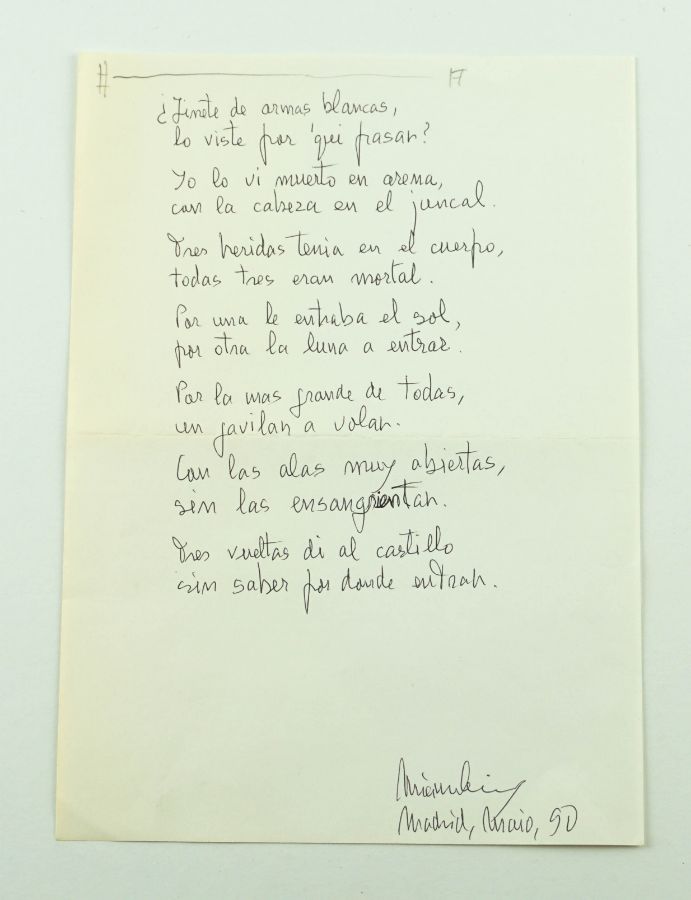 ¿Jinete de armas blancas,
lo viste por 'qui pasar?
Yo lo vi muerto en arena,
con la cabeza en el juncal.
Tres heridas tenia en el cuerpo,
todas tres eran mortal.
Por una le entraba el sol,
por otra la luna a entrar.
Por la mas grande de todas,
un gavilan a volar.
Con las alas muy abiertas,
sin las ensangrentar.
Tres vueltas di al castillo
sin saber por donde entrar.
Madrid, Maio, 90